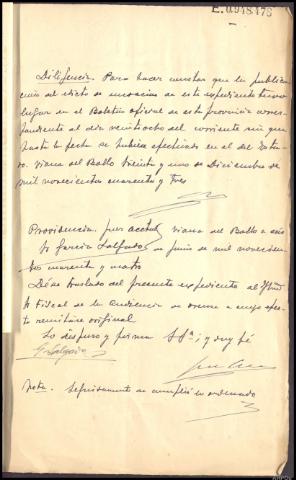 E.0978176
Diligencia. Para hacer constar que la publica
ción del edicto de incoación de este expediente tuvo
lugar en el Boletin oficial de esta provincia corres
pondiente al dia veintiocho del corriente sin que
hasta la fecha se hubiese efectuado en el del Esta
do. Viana del Bollo treinta y uno de Diciembre de
mil novecientos cuarenta y tres
Providencia. Juez acctal. Viana del Bollo a seis
Sr Garcia Salgado de Junio de mil novecien
tos cuarenta y cuatro
Dése traslado del presente expediente al Iltmo
Sr Fiscal de la Audiencia de Orense a cuyo efec
to remitase original
Lo dispuso y firma SSª; y doy fé
G. Salgado
Nota. Seguidamente se cumplió lo ordenado